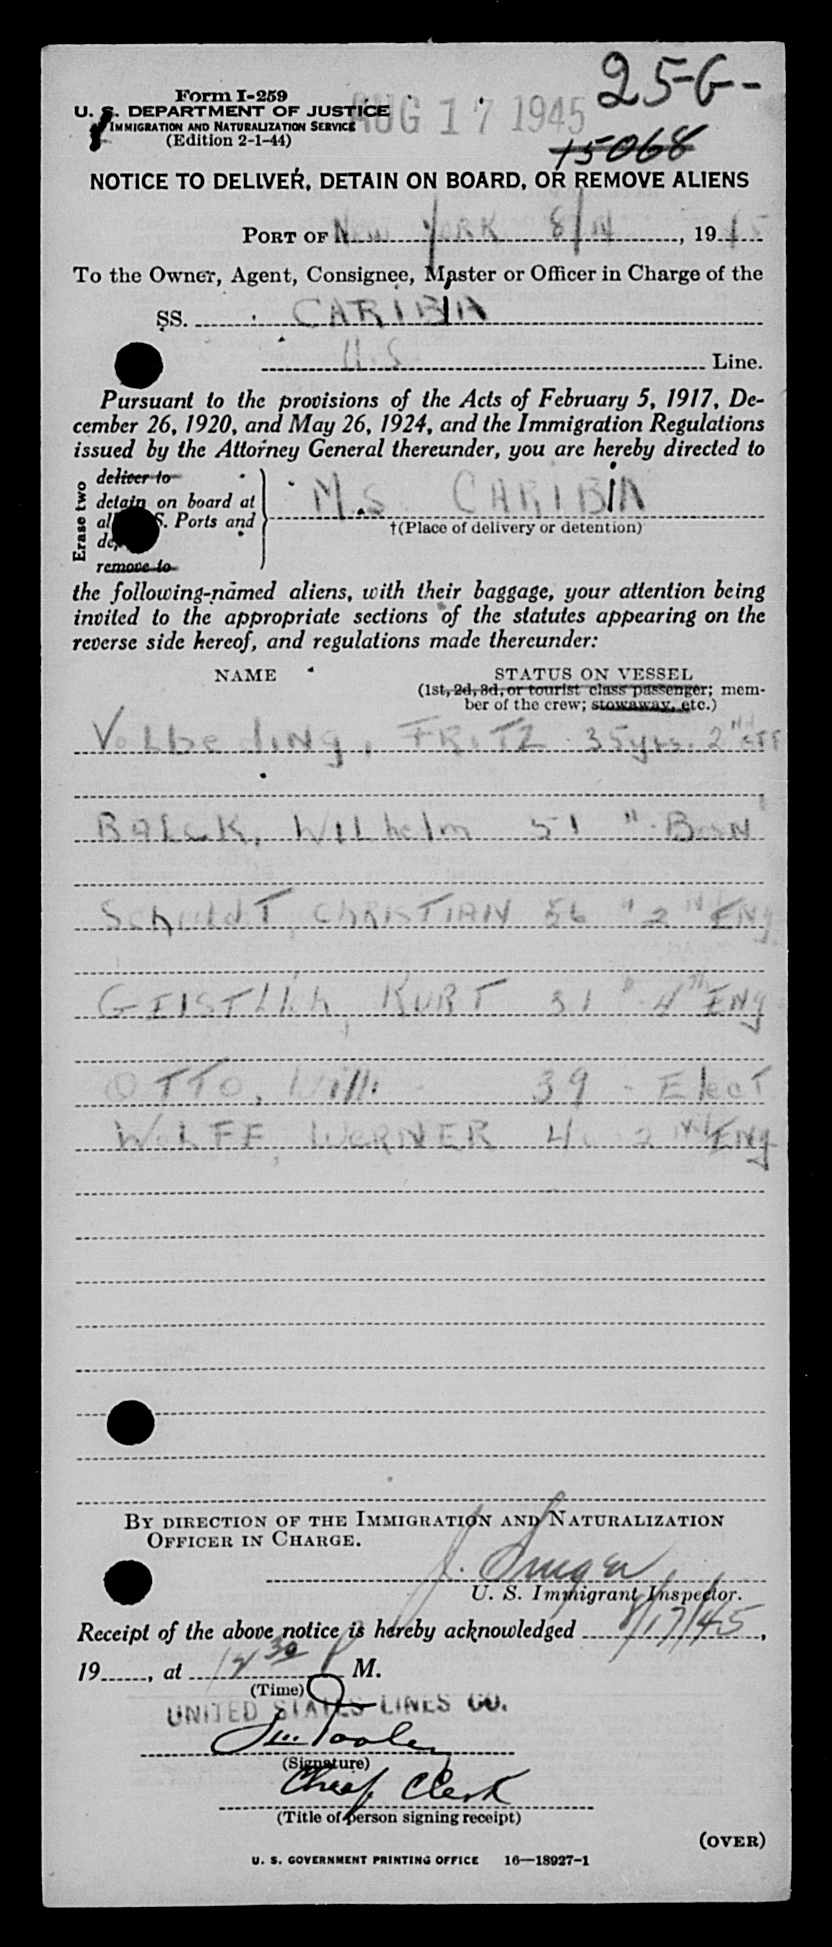 25-G-
Form I-259
U. S. DEPARTMENT OF JUSTICE
IMMIGRATION AND NATURALIZATION SERVICE
(Edition 2-1-44)
AUG 17 1945
15068
NOTICE TO DELIVER, DETAIN ON BOARD, OR REMOVE ALIENS
PORT OF New York 8/14, 1945
To the Owner, Agent, Consignee, Master or Officer in Charge of the
SS. CARIBIA
U.S. Line.
Pursuant to the provisions of the Acts of February 5, 1917, De-
cember 26, 1920, and May 26, 1924, and the Immigration Regulations
issued by the Attorney General thereunder, you are hereby directed to
Erase two
deliver to
detain on board at
al S. Ports and
de
remove to
M.S. CARIBIA
†(Place of delivery or detention)
the following-named aliens, with their baggage, your attention being
invited to the appropriate sections of the statutes appearing on the
reverse side hereof, and regulations made thereunder:
NAME STATUS ON VESSEL
(1st, 2d, 3d, or tourist class passenger; mem-
ber of the crew; stowaway, etc.)
Volbeding, FRITZ 35 yrs. 2nd OFF
BALCK, WILhelm 51 " Bosn
SchmidT, CHRISTIAN 56 " 2nd ENg
GEISTLich, KURT 31 " 4th ENg
OTTO, Willi - 39 - ElecT
WOLFF, WERNER 4 2nd ENg
BY DIRECTION OF THE IMMIGRATION AND NATURALIZATION
OFFICER IN CHARGE.
J. Singer
U. S. Immigrant Inspector.
Receipt of the above notice is hereby acknowledged 8/17/45,
19 , at 12 30 P M.
(Time)
UNITED STATES LINES CO.
(Signature)
Chief Clerk
(Title of person signing receipt)
(OVER)
U. S. GOVERNMENT PRINTING OFFICE 16—18927-1